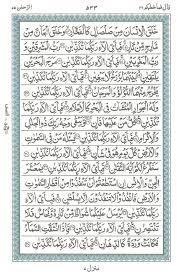 قال فما خطبكم ٢٧
٥٣٣
الرحمن ٥٥
خَلَقَ الْاِنْسَانَ مِنْ صَلْصَالٍ كَالْفَخَّارِ وَخَلَقَ الْجَآنَّ
مِنْ مَّارِجٍ مِّنْ نَّارٍ فَبِاَيِّ اٰلَآءِ رَبِّكُمَا تُكَذِّبٰنِ رَبُّ الْمَشْرِقَيْنِ
وَرَبُّ الْمَغْرِبَيْنِ فَبِاَيِّ اٰلَآءِ رَبِّكُمَا تُكَذِّبٰنِ مَرَجَ الْبَحْرَيْنِ
يَلْتَقِيٰنِ بَيْنَهُمَا بَرْزَخٌ لَّا يَبْغِيٰنِ فَبِاَيِّ اٰلَآءِ رَبِّكُمَا تُكَذِّبٰنِ
يَخْرُجُ مِنْهُمَا اللُّؤْلُؤُ وَالْمَرْجَانُ فَبِاَيِّ اٰلَآءِ رَبِّكُمَا تُكَذِّبٰنِ
وَلَهُ الْجَوَارِ الْمُنْشَئٰتُ فِي الْبَحْرِ كَالْاَعْلَامِ فَبِاَيِّ اٰلَآءِ رَبِّكُمَا تُكَذِّبٰنِ
كُلُّ مَنْ عَلَيْهَا فَانٍ وَّيَبْقٰى وَجْهُ رَبِّكَ ذُو الْجَلٰلِ وَالْاِكْرَامِ
فَبِاَيِّ اٰلَآءِ رَبِّكُمَا تُكَذِّبٰنِ يَسْـَٔلُهٗ مَنْ فِي السَّمٰوٰتِ
وَالْاَرْضِ كُلَّ يَوْمٍ هُوَ فِيْ شَاْنٍ فَبِاَيِّ اٰلَآءِ رَبِّكُمَا تُكَذِّبٰنِ
سَنَفْرُغُ لَكُمْ اَيُّهَ الثَّقَلٰنِ فَبِاَيِّ اٰلَآءِ رَبِّكُمَا تُكَذِّبٰنِ يٰمَعْشَرَ
الْجِنِّ وَالْاِنْسِ اِنِ اسْتَطَعْتُمْ اَنْ تَنْفُذُوْا مِنْ اَقْطَارِ السَّمٰوٰتِ
وَالْاَرْضِ فَانْفُذُوْا لَا تَنْفُذُوْنَ اِلَّا بِسُلْطٰنٍ فَبِاَيِّ اٰلَآءِ
رَبِّكُمَا تُكَذِّبٰنِ يُرْسَلُ عَلَيْكُمَا شُوَاظٌ مِّنْ نَّارٍ وَّنُحَاسٌ فَلَا
تَنْتَصِرٰنِ فَبِاَيِّ اٰلَآءِ رَبِّكُمَا تُكَذِّبٰنِ فَاِذَا انْشَقَّتِ السَّمَآءُ
فَكَانَتْ وَرْدَةً كَالدِّهَانِ فَبِاَيِّ اٰلَآءِ رَبِّكُمَا تُكَذِّبٰنِ
منزل ٧